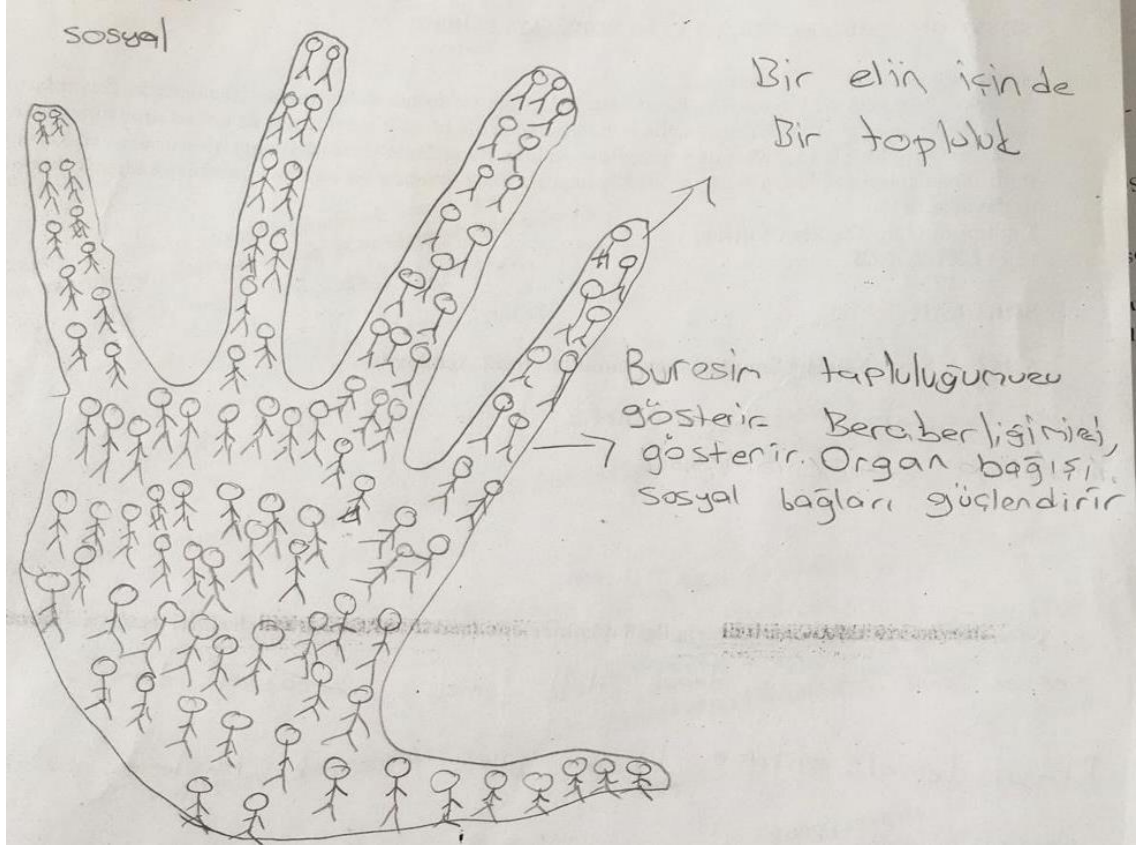 sosyal
Bir elin içinde
Bir topluluk
Buresim tapluluğumuzu
gösterir. Beraberliğimizi,
gösterir. Organ bağışı,
sosyal bağları güçlendirir